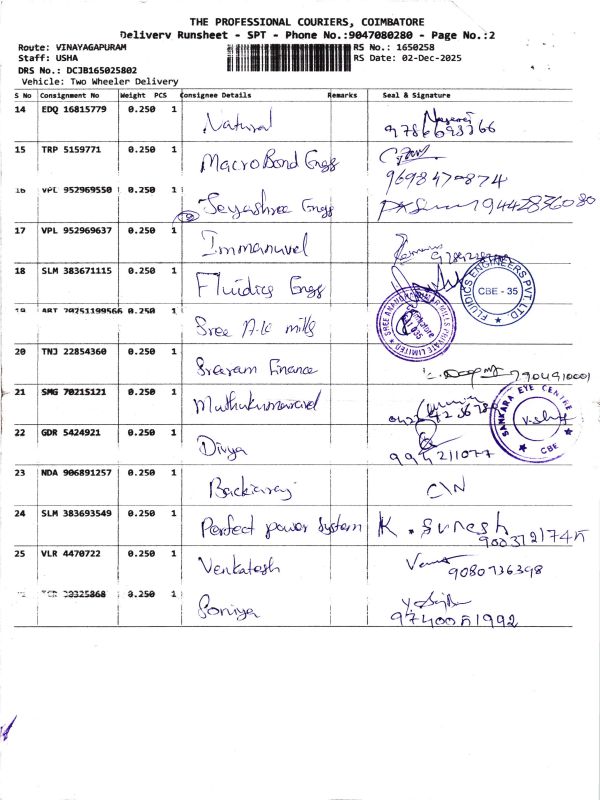 THE PROFESSIONAL COURIERS, COIMBATORE
Delivery Runsheet - SPT - Phone No.:9047080280 - Page No.:2
Route: VINAYAGAPURAM RS No.: 1650258
Staff: USHA RS Date: 02-Dec-2025
DRS No.: DCJB165025802
Vehicle: Two Wheeler Delivery
S No Consignment No Weight PCS Consignee Details Remarks Seal & Signature
14 EDQ 16815779 0.250 1 Natural
15 TRP 5159771 0.250 1 MacroBond Engg
9698470874
16 VPL 952969550 0.250 1 Jeyashree Engg 9442836080
17 VPL 952969637 0.250 1 Immanuvel
18 SLM 383671115 0.250 1 Fluidics Engg
FLUIDICS ENGINEERS PVT. LTD. CBE - 35
19 0.250 1 Sree A.K mills
20 TNJ 22854360 0.250 1 Sreeram Finance
21 SMG 70215121 0.250 1 Muthukumaravel
SANKARA EYE CENTRE CBE
22 GDR 5424921 0.250 1 Divya
23 NDA 906891257 0.250 1 Backiaraj C/N
24 SLM 383693549 0.250 1 Perfect power System K. Suresh
25 VLR 4470722 0.250 1 Venkatesh
9080736398
0.250 1 Soniya